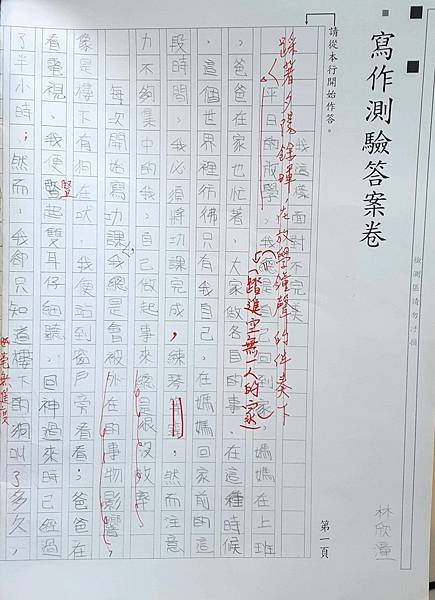 寫作測驗答案卷
請從本行開始作答。
檢測區請勿汙損
第一頁
林欣
我這樣面對不完美
踩著夕陽餘暉,在放學鐘聲的伴奏下
平日的放學,我總是自己回到家,媽媽在上班
(踏進空無一人的家)
,爸爸在家也忙著,大家做各自的事。在這種時候
,這個世界裡彷彿只有我自己。在媽媽回家前的這
段時間,我必須將功課完成,練琴。然而注意
力不夠集中的我,自己做起事來總是很沒效率。
每次開始寫功課,我總是會被外在的事物影響,
像是樓下有狗在吠,我便站到窗戶旁看看;爸爸在
看電視,我便豎起雙耳仔細聽,回神過來時已經過
豎
了半小時;然而,我卻只知道樓下的狗叫了多久,